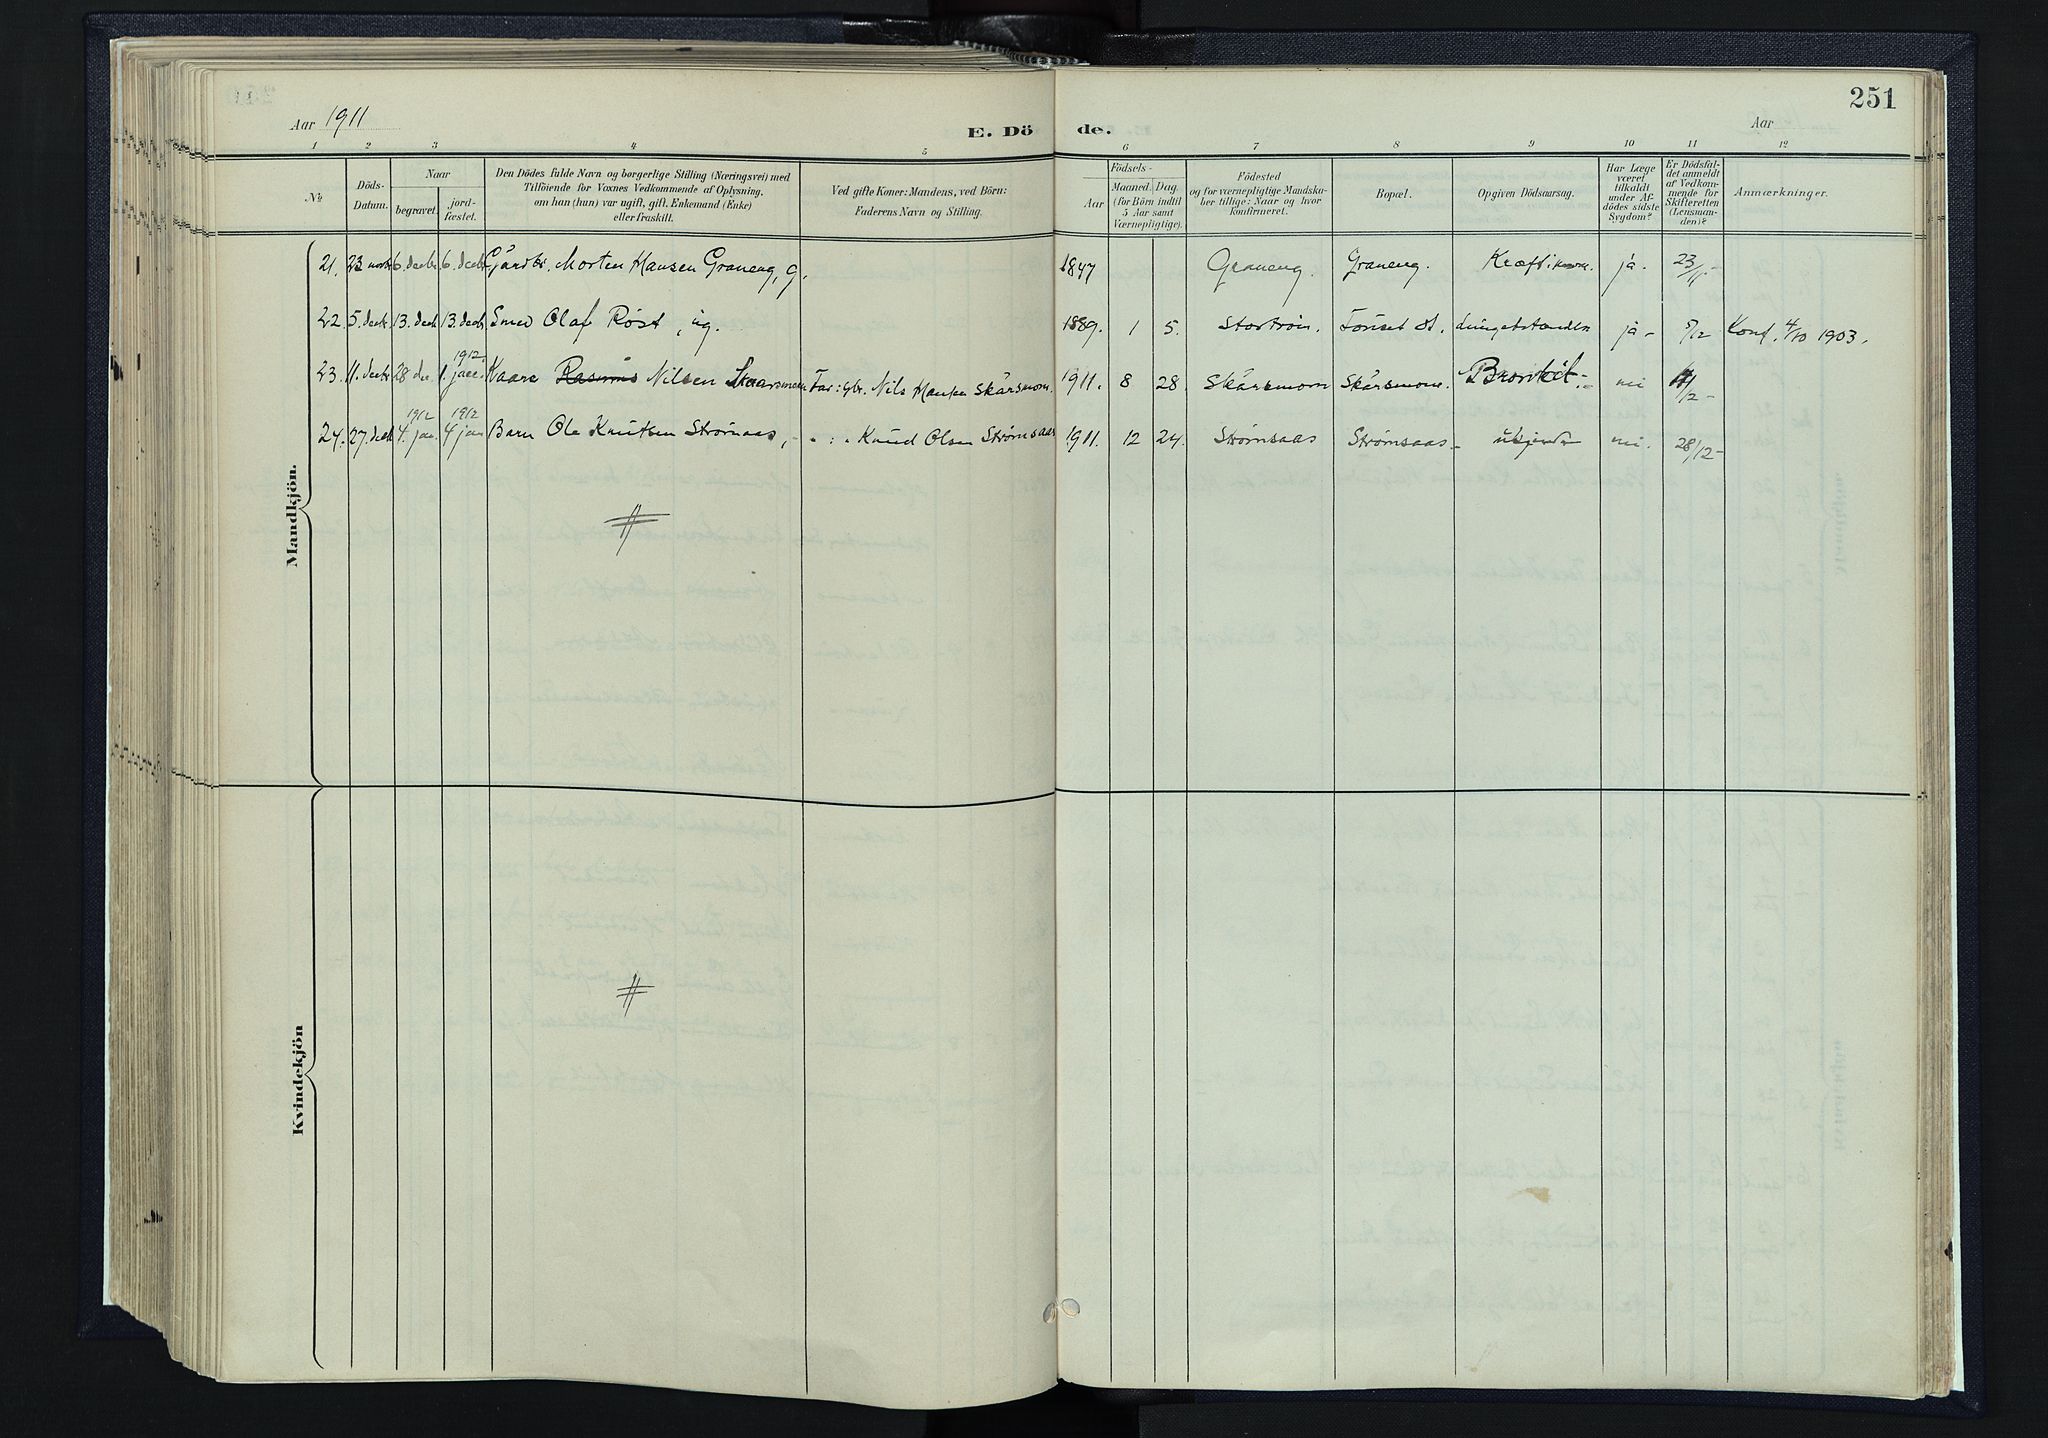 251
Aar 1911
E. Dö de.
Aar
1 2 3 4 5 6 7 8 9 10 11 12
№
Döds-
Datum.
Naar
begravet.
jord-
fæstet.
Den Dödes fulde Navn og borgerlige Stilling (Næringsvei) med
Tilföiende for Voxnes Vedkommende af Oplysning,
om han (hun) var ugift, gift, Enkemand (Enke)
eller fraskilt.
Ved gifte Koner: Mandens, ved Börn:
Faderens Navn og Stilling.
Födsels-
Aar
Maaned. Dag.
(for Börn indtil
5 Aar samt
Værnepligtige).
Födested
og for værnepligtige Mandska-
ber tillige: Naar og hvor
konfirmeret.
Bopæl.
Opgiven Dödsaarsag.
Har Læge
været
tilkaldt
under Af-
dödes sidste
Sygdom?
Er Dödsfal-
det anmeldt
af Vedkom-
mende for
Skifteretten
(Lensman-
den)?
Anmærkninger.
Mandkjön.
21. 23 novbr 6. decbr 6. decbr Gårdbr. Morten Hansen Graneng, g. 1847 Graneng. Graneng. ja. 23/11-
22. 5. decbr 13. decbr 13. decbr Smed Olaf Röst, ug. 1889. 1 5. Stortrön. ja- 5/12 Konf. 4/10 1903.
1912.
23. 11. decbr 28 de 1. jan. Kaare Rasmus Nilsen Skaarsmoen Far: Gbr. Nils Hansen Skårsmoen. 1911. 8 28. Skårsmoen Skårsmoen. Bronkit.- nei 11/12-
1912 1912
24. 27. decbr 4. jan. 4 jan Barn Ole Knutsen Strømsaas, - " : " Knud Olsen Strømsaas 1911. 12 24. Strømsaas Strømsaas- ukjendt nei. 28/12-
Kvindekjön